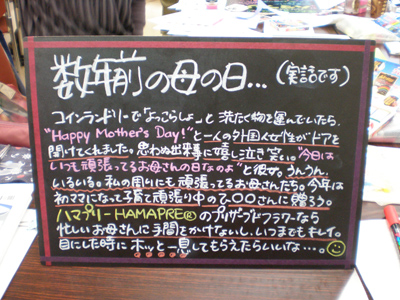 数年前の母の日… (実話です)
コインランドリーで「よっこらしょ…」と洗たく物を運んでいたら、
"Happy Mother's Day!"と一人の外国人女性がドアを
開けてくれました。思わぬ出来事に嬉し泣き笑い。"今日は
いつも頑張ってるお母さんの日なのよ"と彼女。うんうん、
いるいる。私の周りにも頑張ってるお母さんたち。今年は
初ママになって子育て頑張り中の〇〇さんに贈ろう。
ハマプリ-HAMAPRE®のプリザーブドフラワーなら
忙しいお母さんに手間をかけないし、いつまでもキレイ。
目にした時にホッと一息してもらえたらいいな…。